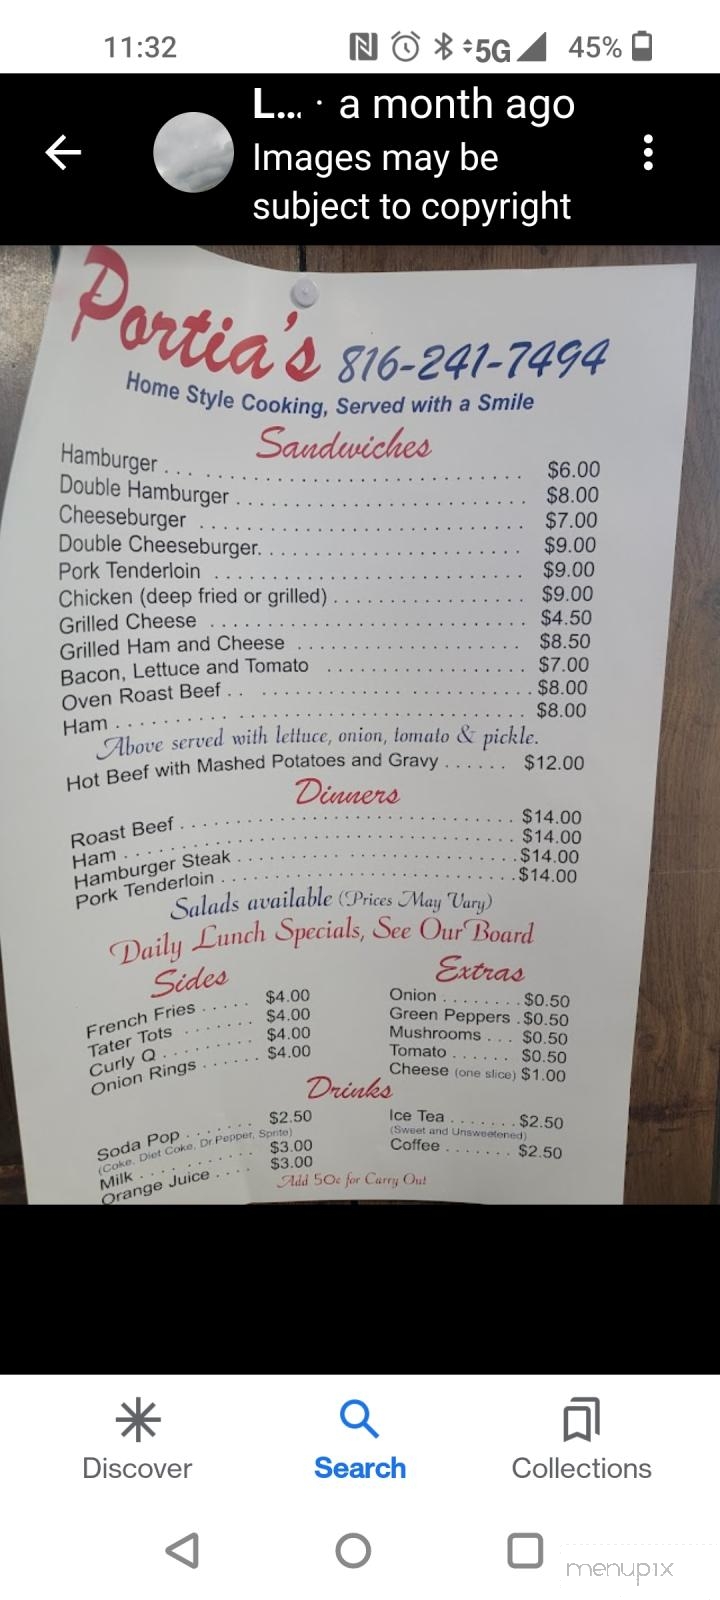 11:32 5G 45%
L... · a month ago
Images may be
subject to copyright
Portia's 816-241-7494
Home Style Cooking, Served with a Smile
Sandwiches
Hamburger . . . . . . . . . . . . . . . . . . . . . . . . . . . $6.00
Double Hamburger . . . . . . . . . . . . . . . . . . . . . . $8.00
Cheeseburger . . . . . . . . . . . . . . . . . . . . . . . . . $7.00
Double Cheeseburger. . . . . . . . . . . . . . . . . . . . $9.00
Pork Tenderloin . . . . . . . . . . . . . . . . . . . . . . . . $9.00
Chicken (deep fried or grilled) . . . . . . . . . . . . . . . $9.00
Grilled Cheese . . . . . . . . . . . . . . . . . . . . . . . . $4.50
Grilled Ham and Cheese . . . . . . . . . . . . . . . . . . $8.50
Bacon, Lettuce and Tomato . . . . . . . . . . . . . . . . $7.00
Oven Roast Beef . . . . . . . . . . . . . . . . . . . . . . . $8.00
Ham . . . . . . . . . . . . . . . . . . . . . . . . . . . . . . . $8.00
Above served with lettuce, onion, tomato & pickle.
Hot Beef with Mashed Potatoes and Gravy . . . . . . $12.00
Dinners
Roast Beef . . . . . . . . . . . . . . . . . . . . . . . . . . $14.00
Ham . . . . . . . . . . . . . . . . . . . . . . . . . . . . . . $14.00
Hamburger Steak . . . . . . . . . . . . . . . . . . . . . . $14.00
Pork Tenderloin . . . . . . . . . . . . . . . . . . . . . . . $14.00
Salads available (Prices May Vary)
Daily Lunch Specials, See Our Board
Sides
French Fries . . . . . $4.00
Tater Tots . . . . . . . $4.00
Curly Q . . . . . . . . . $4.00
Onion Rings . . . . . . $4.00
Extras
Onion . . . . . . . . $0.50
Green Peppers . $0.50
Mushrooms . . . $0.50
Tomato . . . . . . $0.50
Cheese (one slice) $1.00
Drinks
Soda Pop . . . . . . . $2.50
(Coke, Diet Coke, Dr.Pepper, Sprite)
Milk . . . . . . . . . . . . $3.00
Orange Juice . . . . $3.00
Ice Tea . . . . . . . $2.50
(Sweet and Unsweetened)
Coffee . . . . . . . $2.50
Add 50¢ for Carry Out
Discover Search Collections
menupix